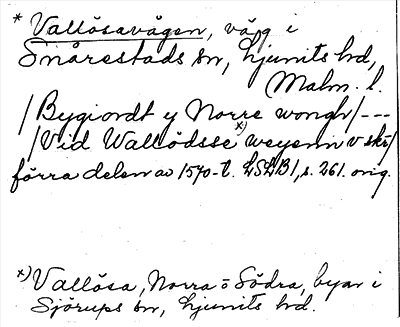 * Vallösavägen, väg i
Snårestads sn, Ljunits hd,
Malm. l.
/Bygiordt y Norre wongh/---
/Vid Wallödsse x) weyenn v skr/
förra delen av 1570-t. LSLB1, s. 261. orig.
x) Vallösa, Norra = Södra, byar i
Sjörups sn, Ljunits hd.